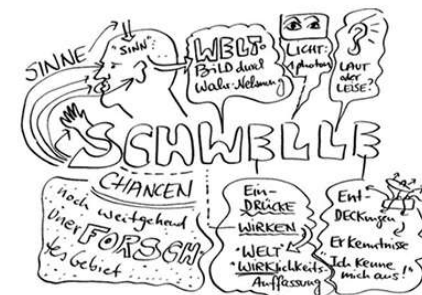 SINNE
"SINN"
WELT-
BILD durch
Wahr-Nehmung
LICHT:
1 photon
?
LAUT
oder
LEISE?
SCHWELLE
CHANCEN
noch weitgehend
UnerFORSCH-
tes Gebiet
Ein-
DRÜCKE
WIRKEN
"WELT"
"WIRKlichkeits-
Auffassung
Ent-
DECKungen
Erkenntnisse
"Ich kenne
mich aus!"